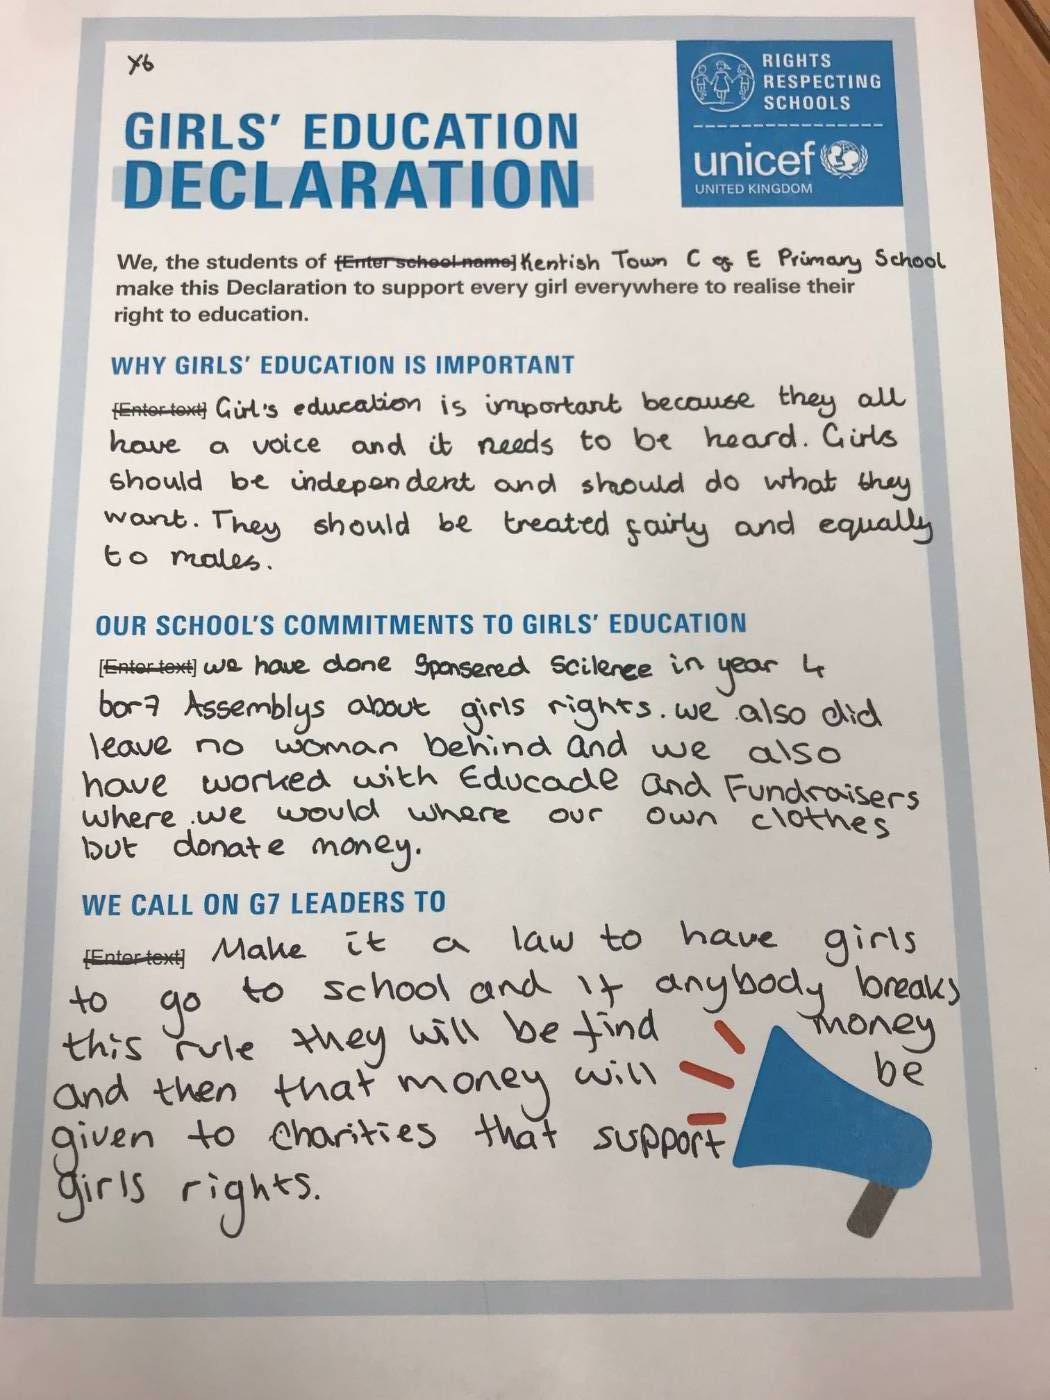 Y6
RIGHTS
RESPECTING
SCHOOLS
unicef
UNITED KINGDOM
GIRLS' EDUCATION
DECLARATION
We, the students of [Enter school name] Kentish Town C of E Primary School
make this Declaration to support every girl everywhere to realise their
right to education.
WHY GIRLS' EDUCATION IS IMPORTANT
[Enter text] Girl's education is important because they all
have a voice and it needs to be heard. Girls
should be independent and should do what they
want. They should be treated fairly and equally
to males.
OUR SCHOOL'S COMMITMENTS TO GIRLS' EDUCATION
[Enter text] we have done Sponsered Scilence in year 4
Assemblys about girls rights. we also did
leave no woman behind and we also
have worked with Educade and Fundraisers
where we would where our own clothes
but donate money.
WE CALL ON G7 LEADERS TO
[Enter text] Make it a law to have girls
to go to school and if anybody breaks
this rule they will be find money
and then that money will be
given to charities that support
girls rights.